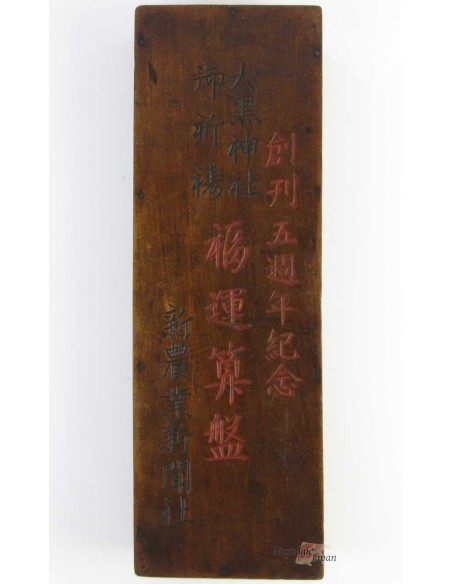 創刊五週年紀念
大黑神社
御祈禱
福運算盤
新農業新聞社
Japan